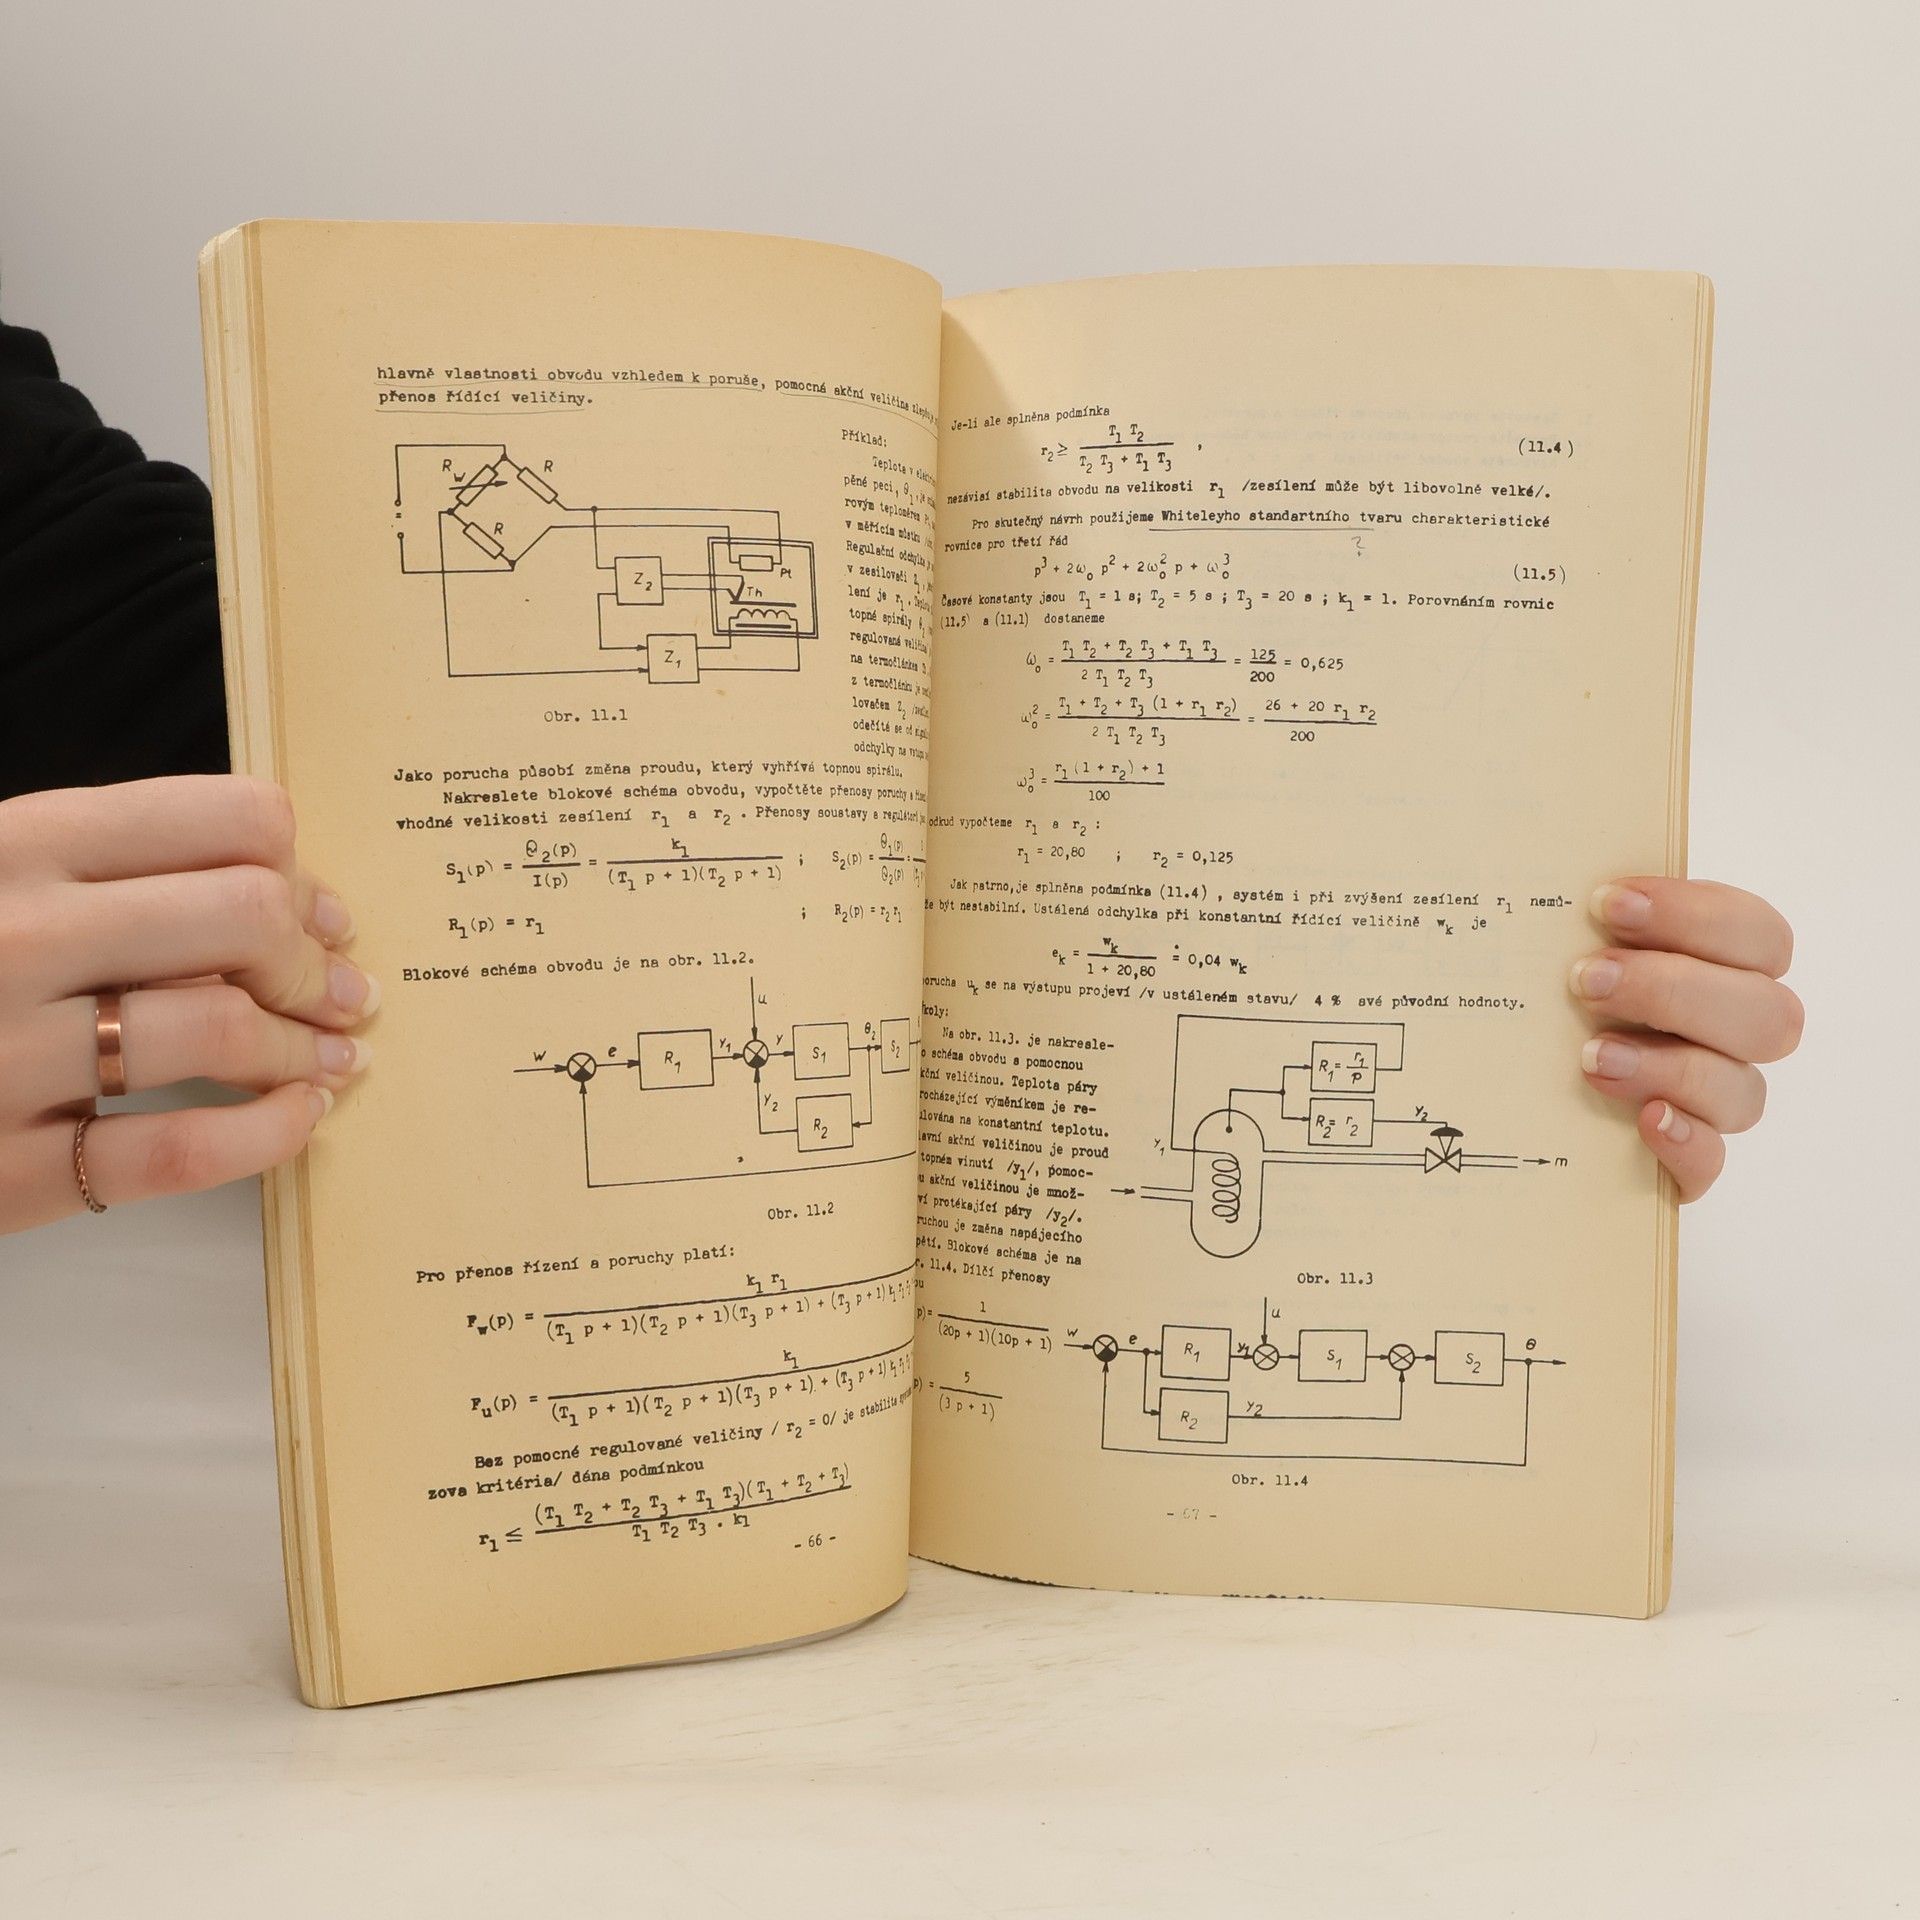 hlavně vlastnosti obvodu vzhledem k poruše, pomocná akční veličina
přenos řídící veličiny.
R
w
R
R
=
Z2
Z1
Pt
Th
Obr. 11.1
Příklad:
Teplota v
pěné peci, θ1, je
rovým teploměrem
v měřícím můstku
Regulační odchylka
v zesilovači Z1,
lení je r1.
topné spirály θ2
regulovaná
na termočlánkem
z termočlánku je
lovačem Z2
odečítá se od
odchylky na
Jako porucha působí změna proudu, který vyhřívá topnou spirálu.
Nakreslete blokové schéma obvodu, vypočtěte přenosy poruchy a
vhodné velikosti zesílení r1 a r2 . Přenosy soustavy a
S1(p) = θ2(p) / I(p) = k1 / (T1 p + 1)(T2 p + 1) ; S2(p) = θ1(p) / θ2(p) =
R1(p) = r1 ; R2(p) = r2 r1
Blokové schéma obvodu je na obr. 11.2.
w e R1 y1 u y S1 θ2 S2
y2 R2
Obr. 11.2
Pro přenos řízení a poruchy platí:
Fw(p) = k1 r1 / (T1 p + 1)(T2 p + 1)(T3 p + 1) + (T3 p + 1)
Fu(p) = k1 / (T1 p + 1)(T2 p + 1)(T3 p + 1) + (T3 p + 1)
Bez pomocné regulované veličiny / r2 = 0/ je stabilita
zova kritéria/ dána podmínkou
r1 ≤ (T1 T2 + T2 T3 + T1 T3)(T1 + T2 + T3) / T1 T2 T3 . k1
- 66 -
Je-li ale splněna podmínka
r2 ≥ T1 T2 / T2 T3 + T1 T3 , (11.4)
nezávisí stabilita obvodu na velikosti r1 /zesílení může být libovolně velké/.
Pro skutečný návrh použijeme Whiteleyho standartního tvaru charakteristické
rovnice pro třetí řád
?
p³ + 2ω0 p² + 2ω0² p + ω0³ (11.5)
Časové konstanty jsou T1 = 1 s; T2 = 5 s ; T3 = 20 s ; k1 = 1. Porovnáním rovnic
(11.5) a (11.1) dostaneme
ω0 = T1 T2 + T2 T3 + T1 T3 / 2 T1 T2 T3 = 125 / 200 = 0,625
ω0² = T1 + T2 + T3 (1 + r1 r2) / 2 T1 T2 T3 = 26 + 20 r1 r2 / 200
ω0³ = r1 (1 + r2) + 1 / 100
odkud vypočteme r1 a r2 :
r1 = 20,80 ; r2 = 0,125
Jak patrno,je splněna podmínka (11.4) , systém i při zvýšení zesílení r1 nemů-
že být nestabilní. Ustálená odchylka při konstantní řídící veličině wk je
ek = wk / 1 + 20,80 ≐ 0,04 wk
porucha uk se na výstupu projeví /v ustáleném stavu/ 4 % své původní hodnoty.
koly:
Na obr. 11.3. je nakresle-
o schéma obvodu s pomocnou
kční veličinou. Teplota páry
rocházející výměníkem je re-
ulována na konstantní teplotu.
avní akční veličinou je proud
topném vinutí /y1/, pomoc-
u akční veličinou je množ-
ví protékající páry /y2/.
ruchou je změna napájecího
pětí. Blokové schéma je na
r. 11.4. Dílčí přenosy
ou
p)= 1 / (20p + 1)(10p + 1)
p) = 5 / (3 p + 1)
R1= r1 / p
R2= r2
y2
y1
m
Obr. 11.3
w e R1 y1 u S1 S2 θ
R2 y2
Obr. 11.4
- 67 -